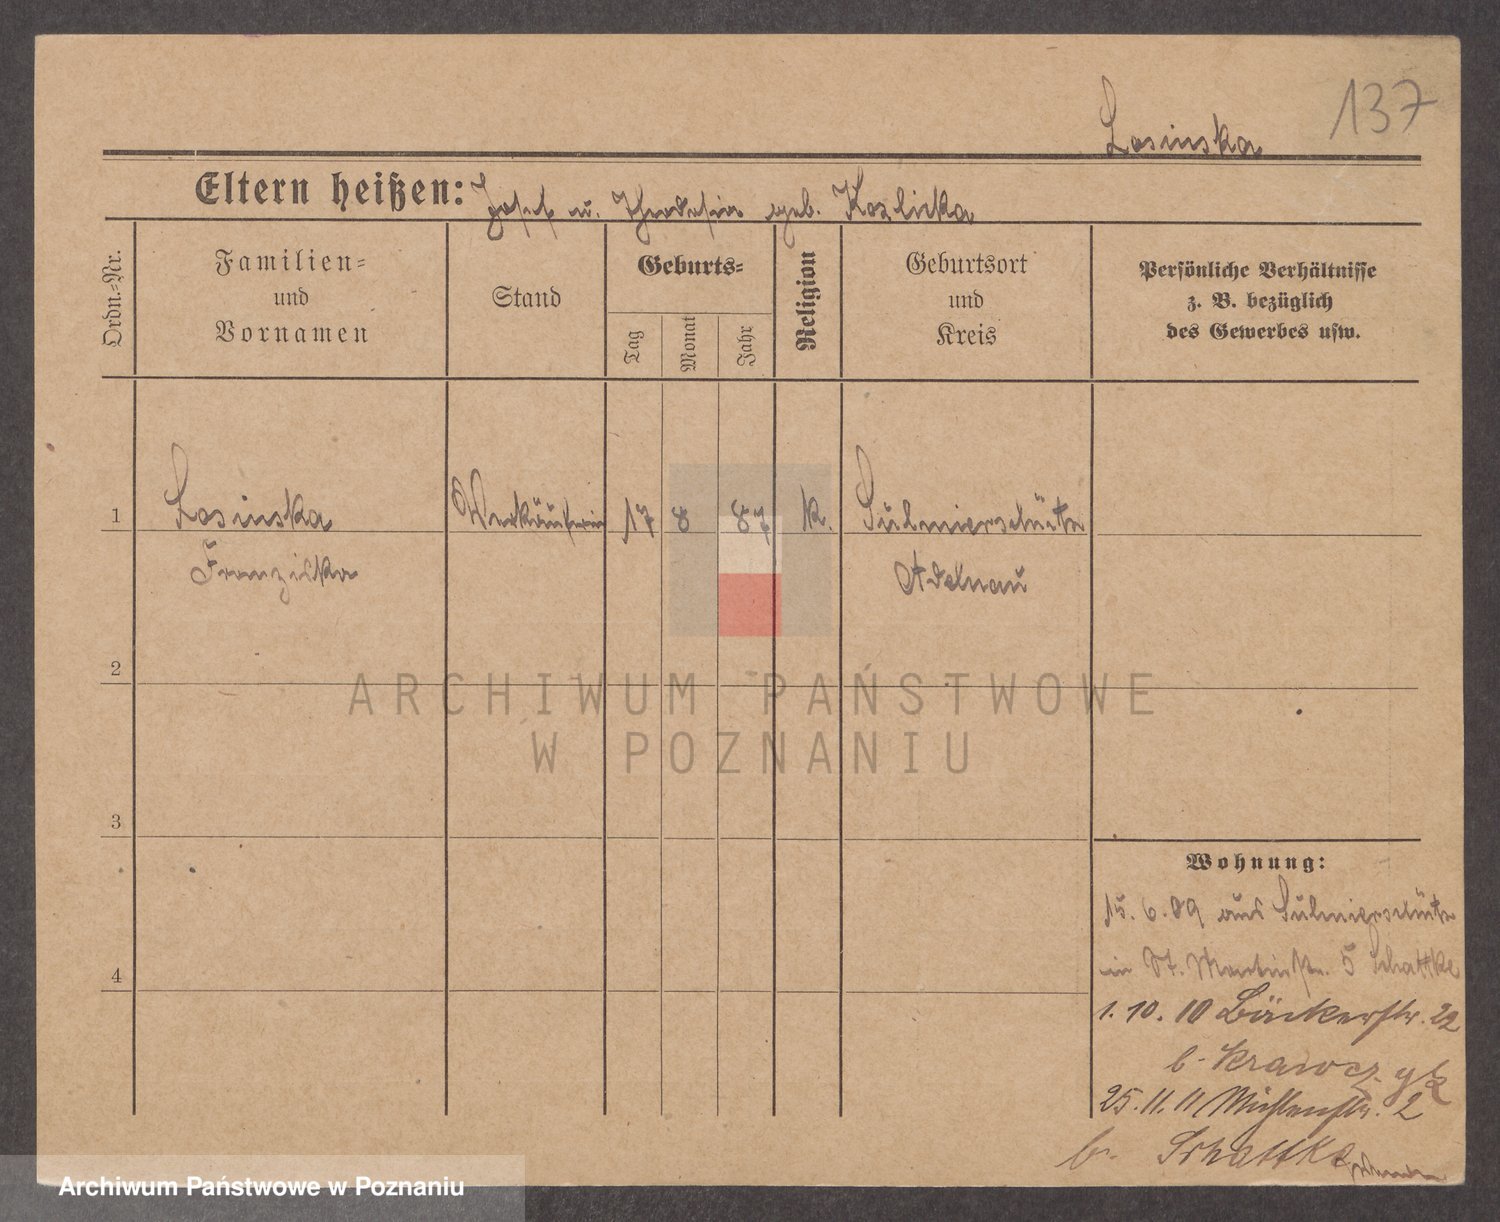 137
Losinska
Eltern heißen: Josef u. Theresia geb. Kozlicka
Ordn.-Nr.
Familien-
und
Vornamen
Stand
Geburts-
Tag
Monat
Jahr
Religion
Geburtsort
und
Kreis
Persönliche Verhältnisse
z. B. bezüglich
des Gewerbes usw.
1 Losinska Verkäuferin 17 8 87 k. Sulmierschütz
Franziska Adelnau
2
ARCHIWUM PAŃSTWOWE
W POZNANIU
3
Wohnung:
15.6.09 aus Sulmierschütz
in St. Martinstr. 5 Schattke
4
1.10.10 Bäckerstr. 22
b. Krawczyk
25.11.11 Mühlenstr. 2
b. Schattke
Archiwum Państwowe w Poznaniu